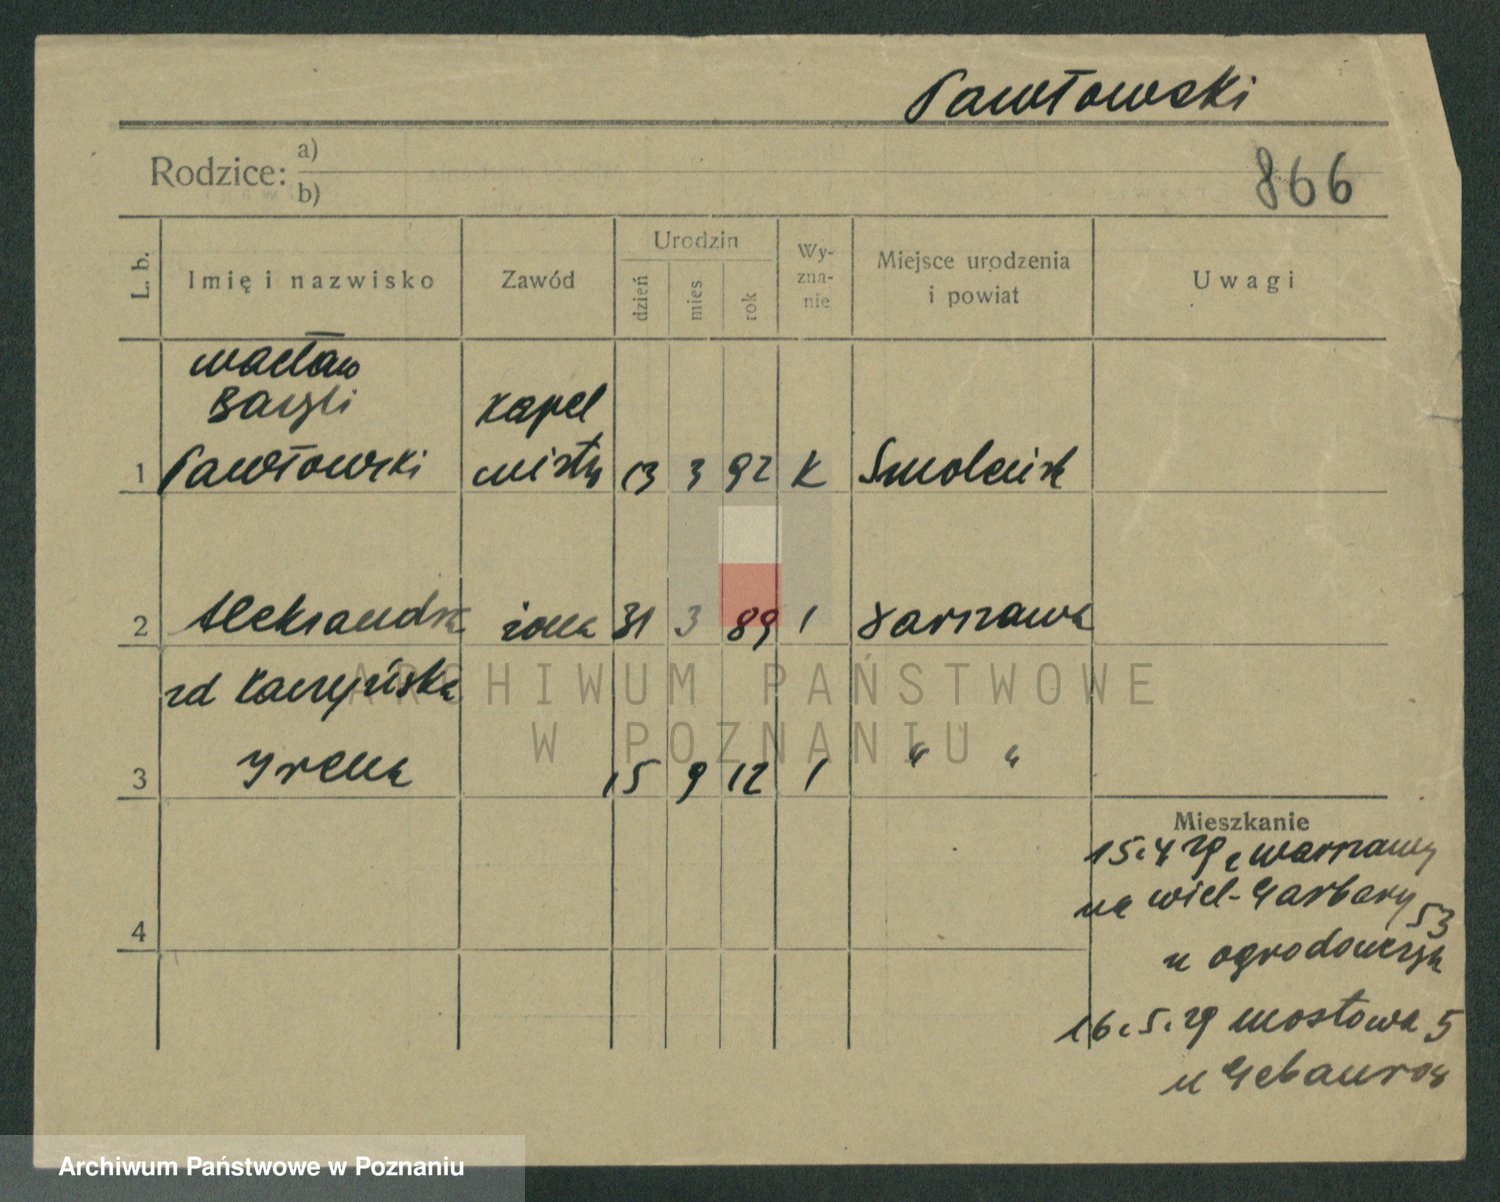 Pawłowski
Rodzice: a)
b)
866
L. b.
Imię i nazwisko
Zawód
Urodzin
dzień
mies
rok
Wy-
zna-
nie
Miejsce urodzenia
i powiat
Uwagi
Wacław
Bazyli
1 Pawłowski
kapel
mistrz
13 3 92 K Smoleńsk
2 Aleksandra żona 31 3 89 " Warszawa
zd Kaczyńska
3 Irena 15 9 12 " " "
4
Mieszkanie
15.4 29 z Warszawy
na Wiel-Garbary 53
u Ogrodowczyk
16.5.29 Mostowa 5
u Gebauror
ARCHIWUM PAŃSTWOWE
W POZNANIU
Archiwum Państwowe w Poznaniu